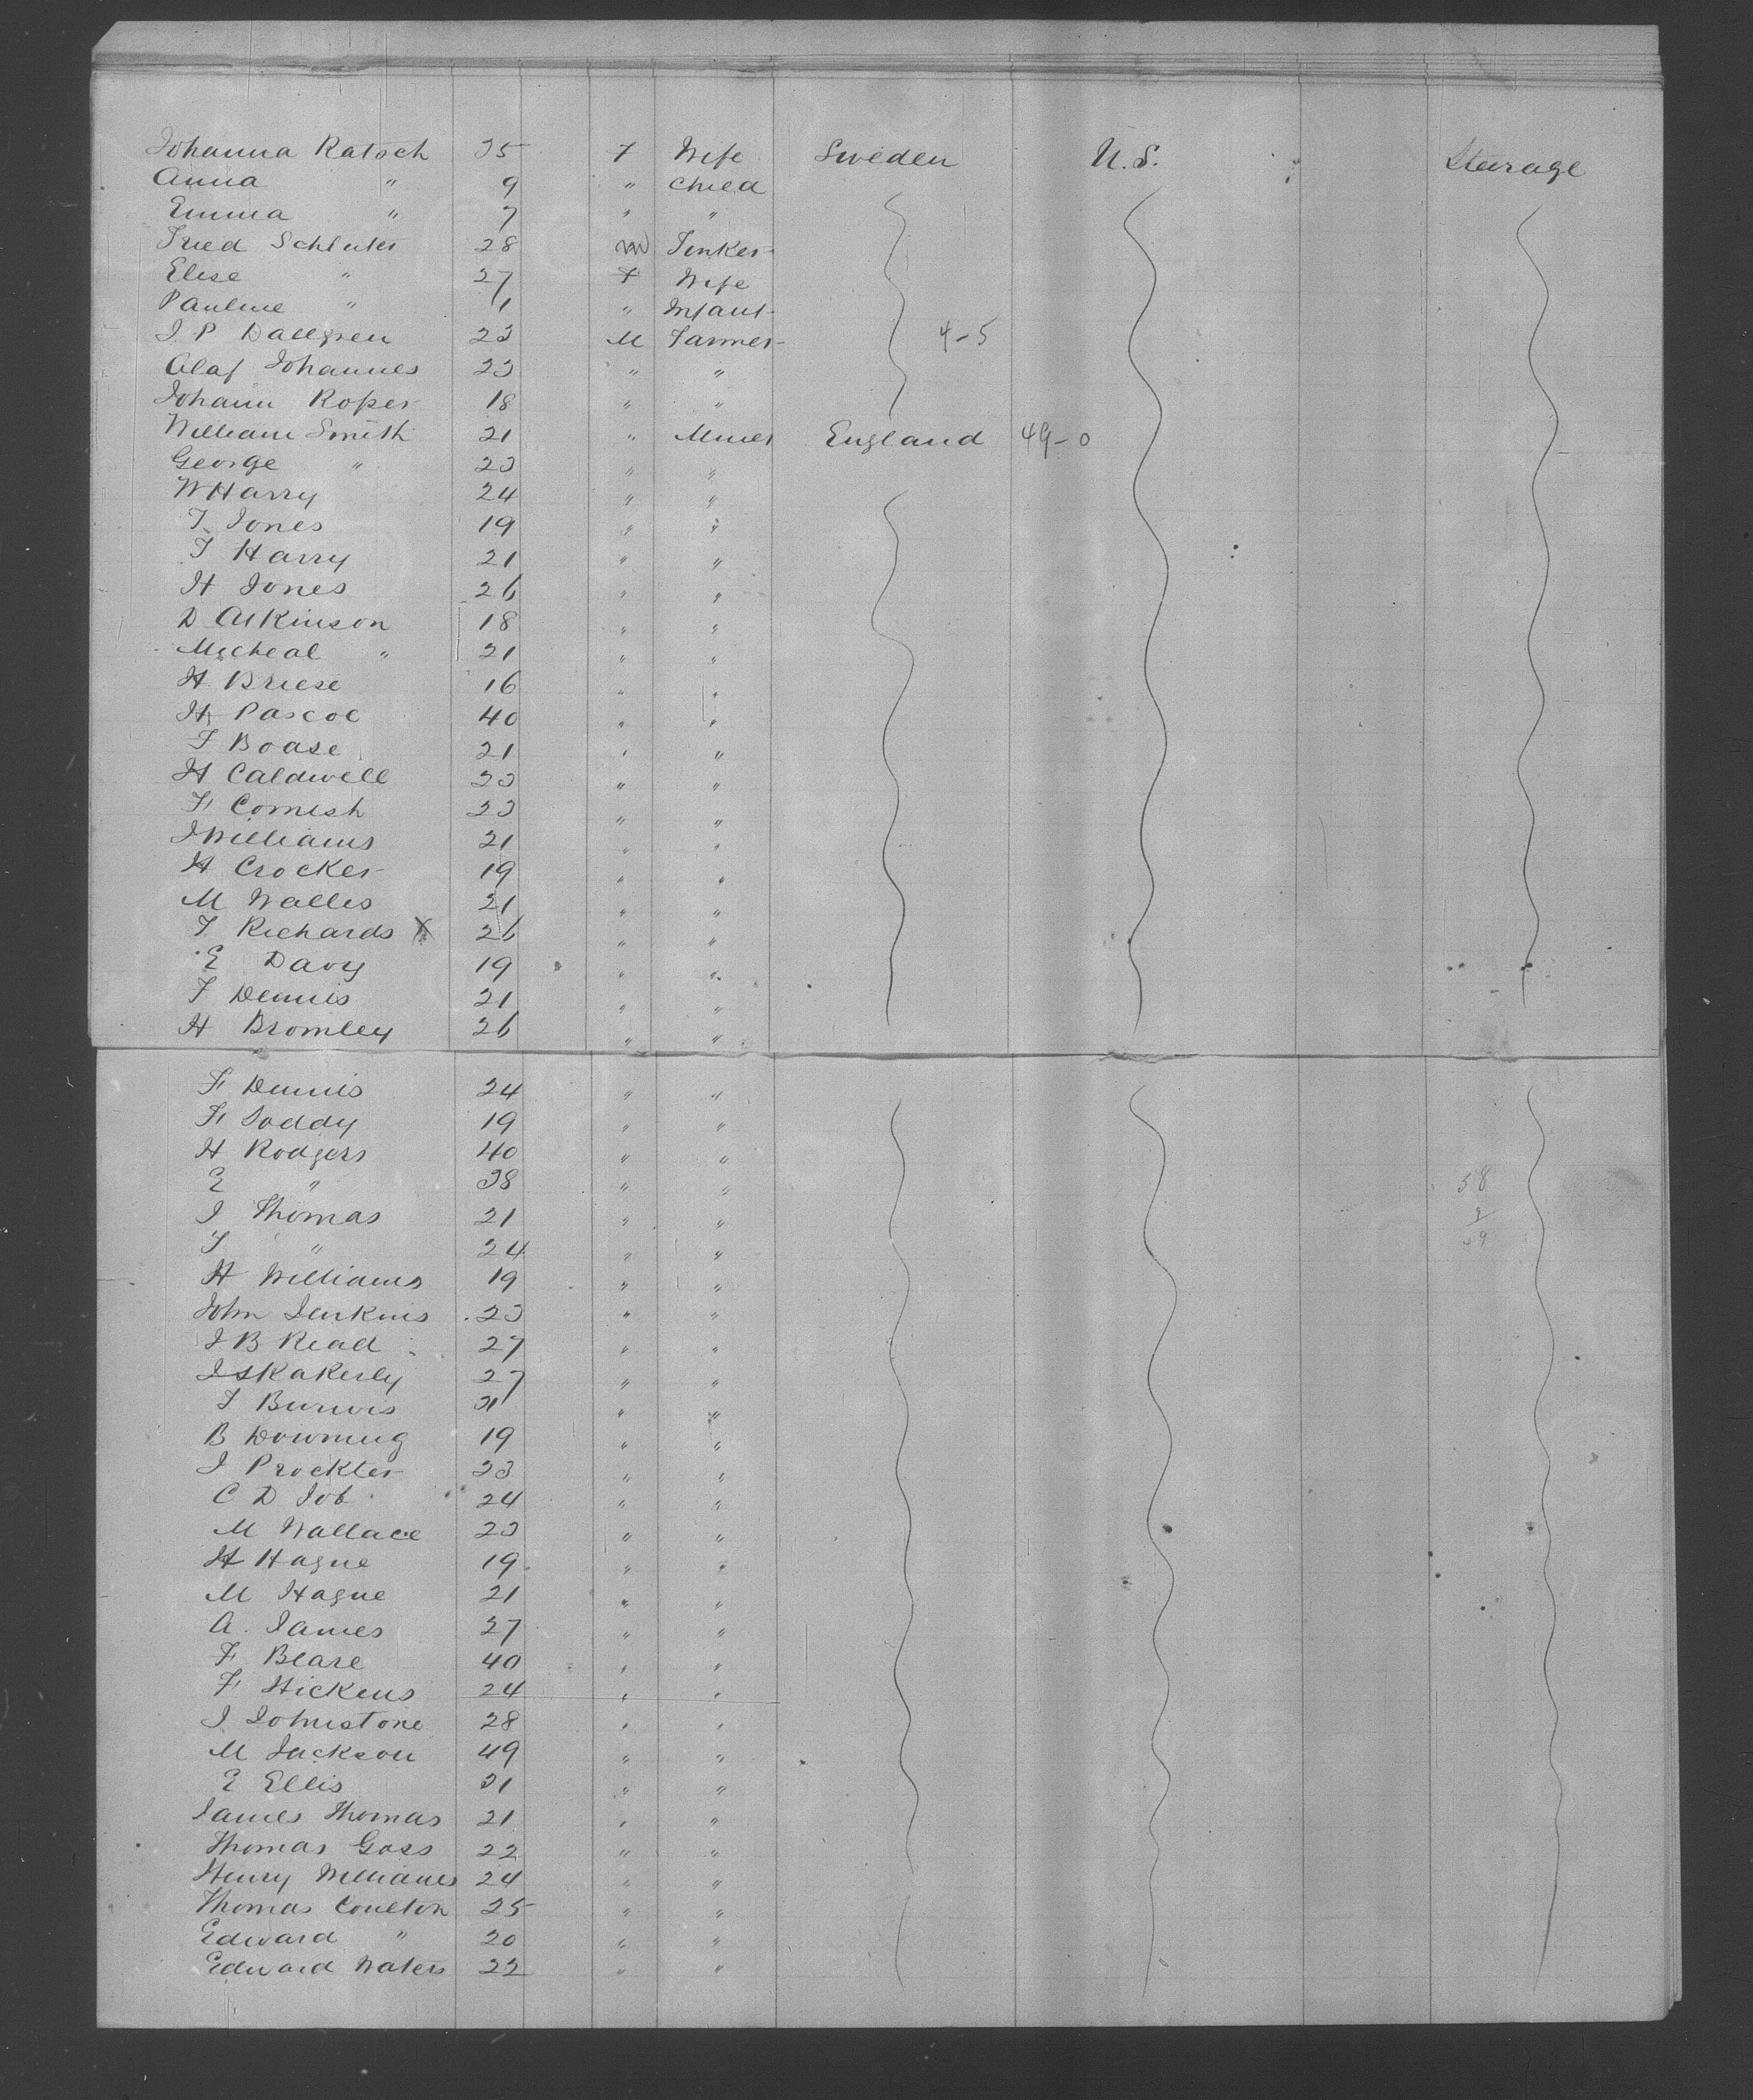 Johanna Ratsch 35 F Wife Sweden U.S. Stearage
Anna " 9 " Child
Emma " 7 " "
Fried Schluter 28 M Tinker
Elise " 27 F Wife
Pauline " 1 " Infant
J. P Dallgren 23 M Farmer 4-5
Olaf Johannes 23 " "
Johann Roper 18 " "
William Smith 21 " Miner England 49-0
George " 23 " "
W Harry 24 " "
T. Jones 19 " "
T Harry 21 " "
H Jones 26 " "
D Atkinson 18 " "
Micheal " 21 " "
H Briese 16 " "
H Pascoe 40 " "
T Boase 21 " "
H Caldwell 23 " "
F Cornish 23 " "
J Williams 21 " "
H Crocker 19 " "
M Wallis 21 " "
T Richards X 26 " "
E Davy 19 " "
T Dennis 21 " "
H Bromley 26 " "
F Dennis 24 " "
F Soddy 19 " "
H Rodgers 40 " "
E " 38 " " 58
J Thomas 21 " "
T " 24 " "
H Williams 19 " "
John Jenkins 23 " "
J B Read 27 " "
J Skakerly 27 " "
T Burwis 31 " "
B Downing 19 " "
J Prockter 23 " "
C D Job 24 " "
M Wallace 23 " "
H Hague 19 " "
M Hague 21 " "
A. James 27 " "
F Blare 40 " "
F Hickens 24 " "
J Johnstone 28 " "
M Jackson 49 " "
E Ellis 31 " "
James Thomas 21 " "
Thomas Goss 22 " "
Henry Williams 24 " "
Thomas Coulton 25 " "
Edward " 20 " "
Edward Waters 22 " "